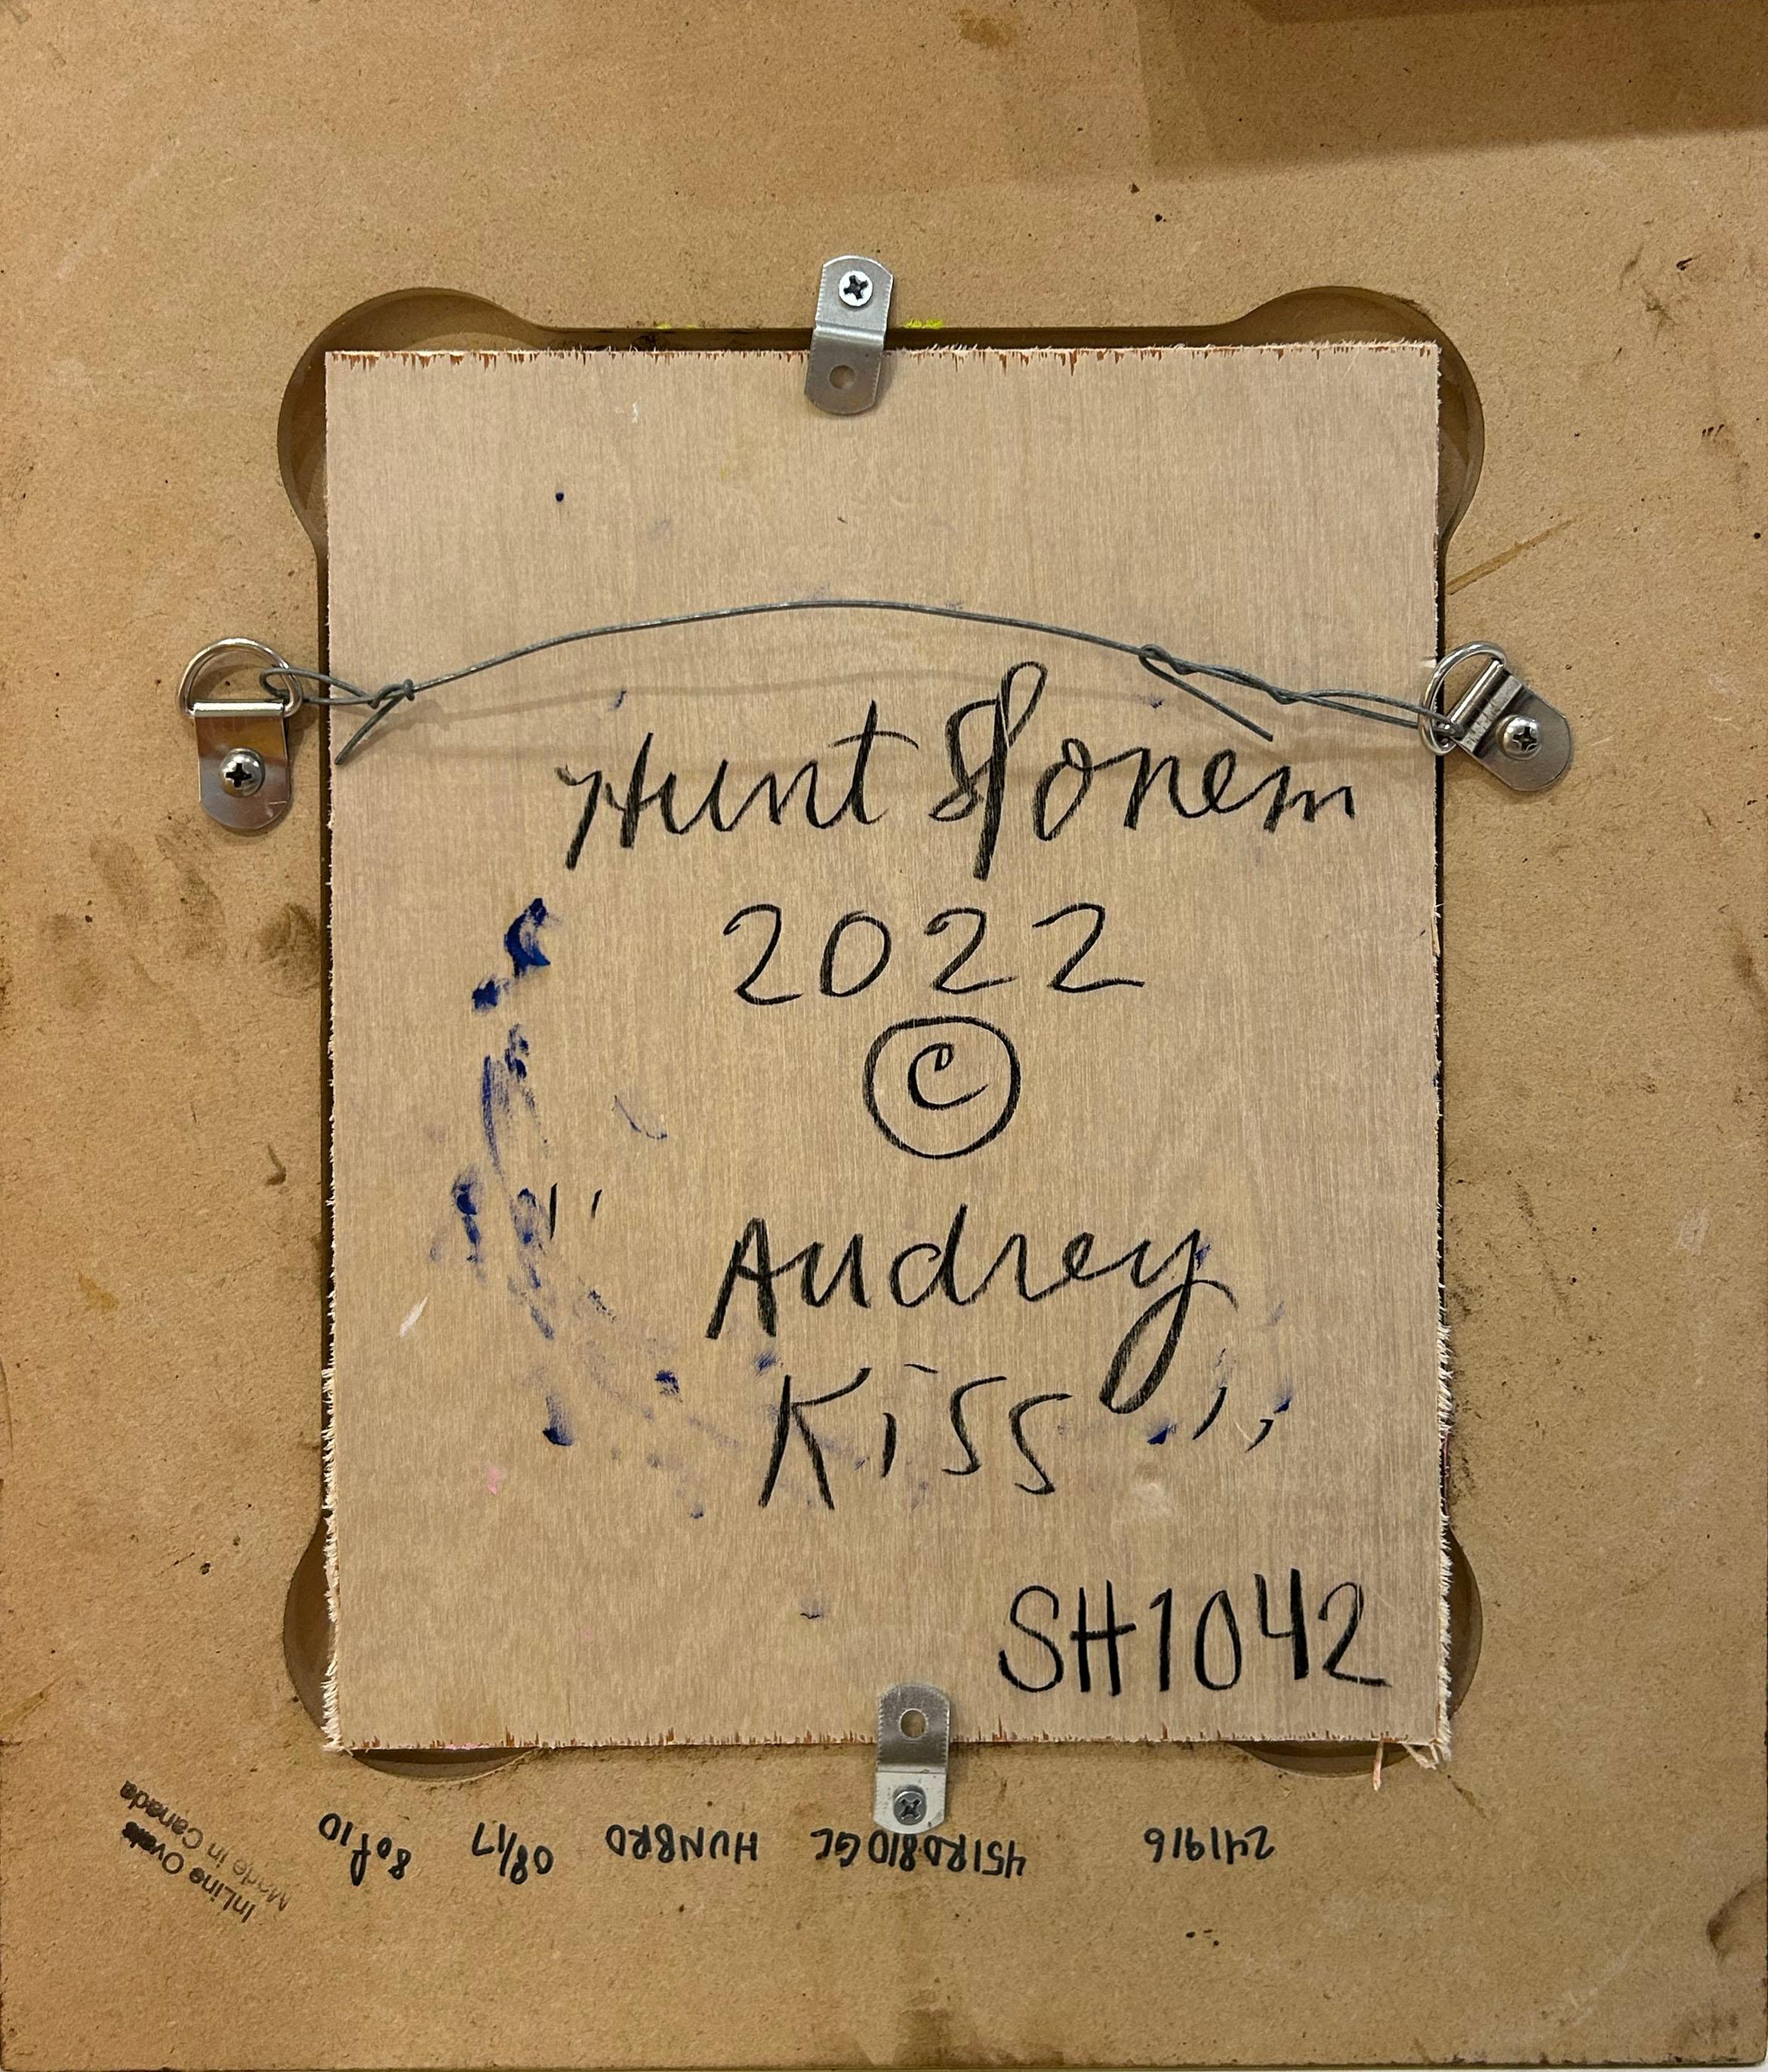 Hunt Slonem
2022
©
" Audrey
Kiss "
SH1042
241916 451RD810GL HUNBRD 08/17 8 of 10
InLine Ovals
Made in Canada